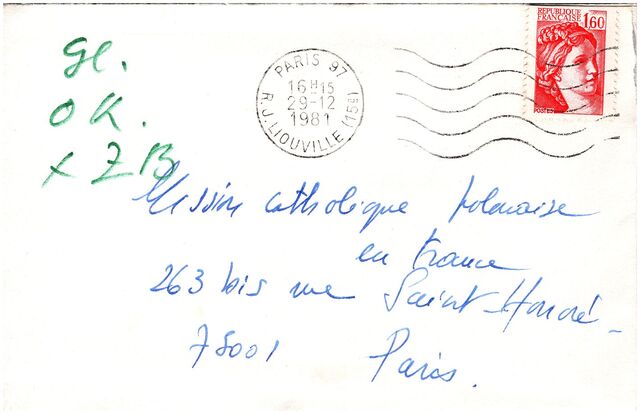 REPUBLIQUE
FRANÇAISE
1,60
POSTES
PARIS 97
16H15
29-12
1981
R.J. LIOUVILLE (15e)
Gl.
OK.
x ZB
Mission catholique polonaise
en France
263 bis rue Saint-Honoré-
75001 Paris.